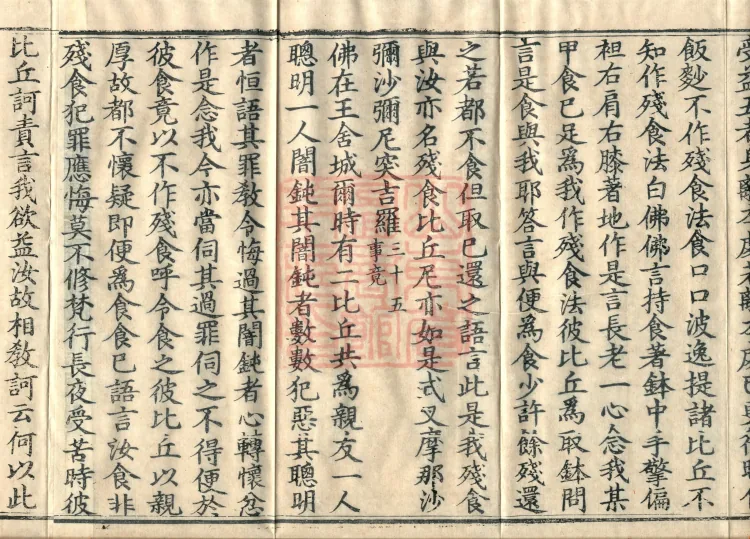 飯麨不作殘食法食口口波逸提諸比丘不
知作殘食法白佛佛言持食著鉢中手擎偏
袒右肩右膝著地作是言長老一心念我某
甲食巳足爲我作殘食法彼比丘爲取鉢問
言是食與我耶答言與便爲食少許餘殘還
之若都不食但取巳還之語言此是我殘食
與汝亦名殘食比丘尼亦如是式叉摩那沙
彌沙彌尼突吉羅三十五事竟
佛在王舍城爾時有二比丘共爲親友一人
聰明一人闇鈍其闇鈍者數數犯惡其聰明
者恒語其罪教令悔過其闇鈍者心轉懷忿
作是念我今亦當伺其過罪伺之不得便於
彼食竟以不作殘食呼令食之彼比丘以親
厚故都不懷疑即便爲食食巳語言汝食非
殘食犯罪應悔莫不修梵行長夜受苦時彼
比丘訶責言我欲益汝故相教訶云何以此